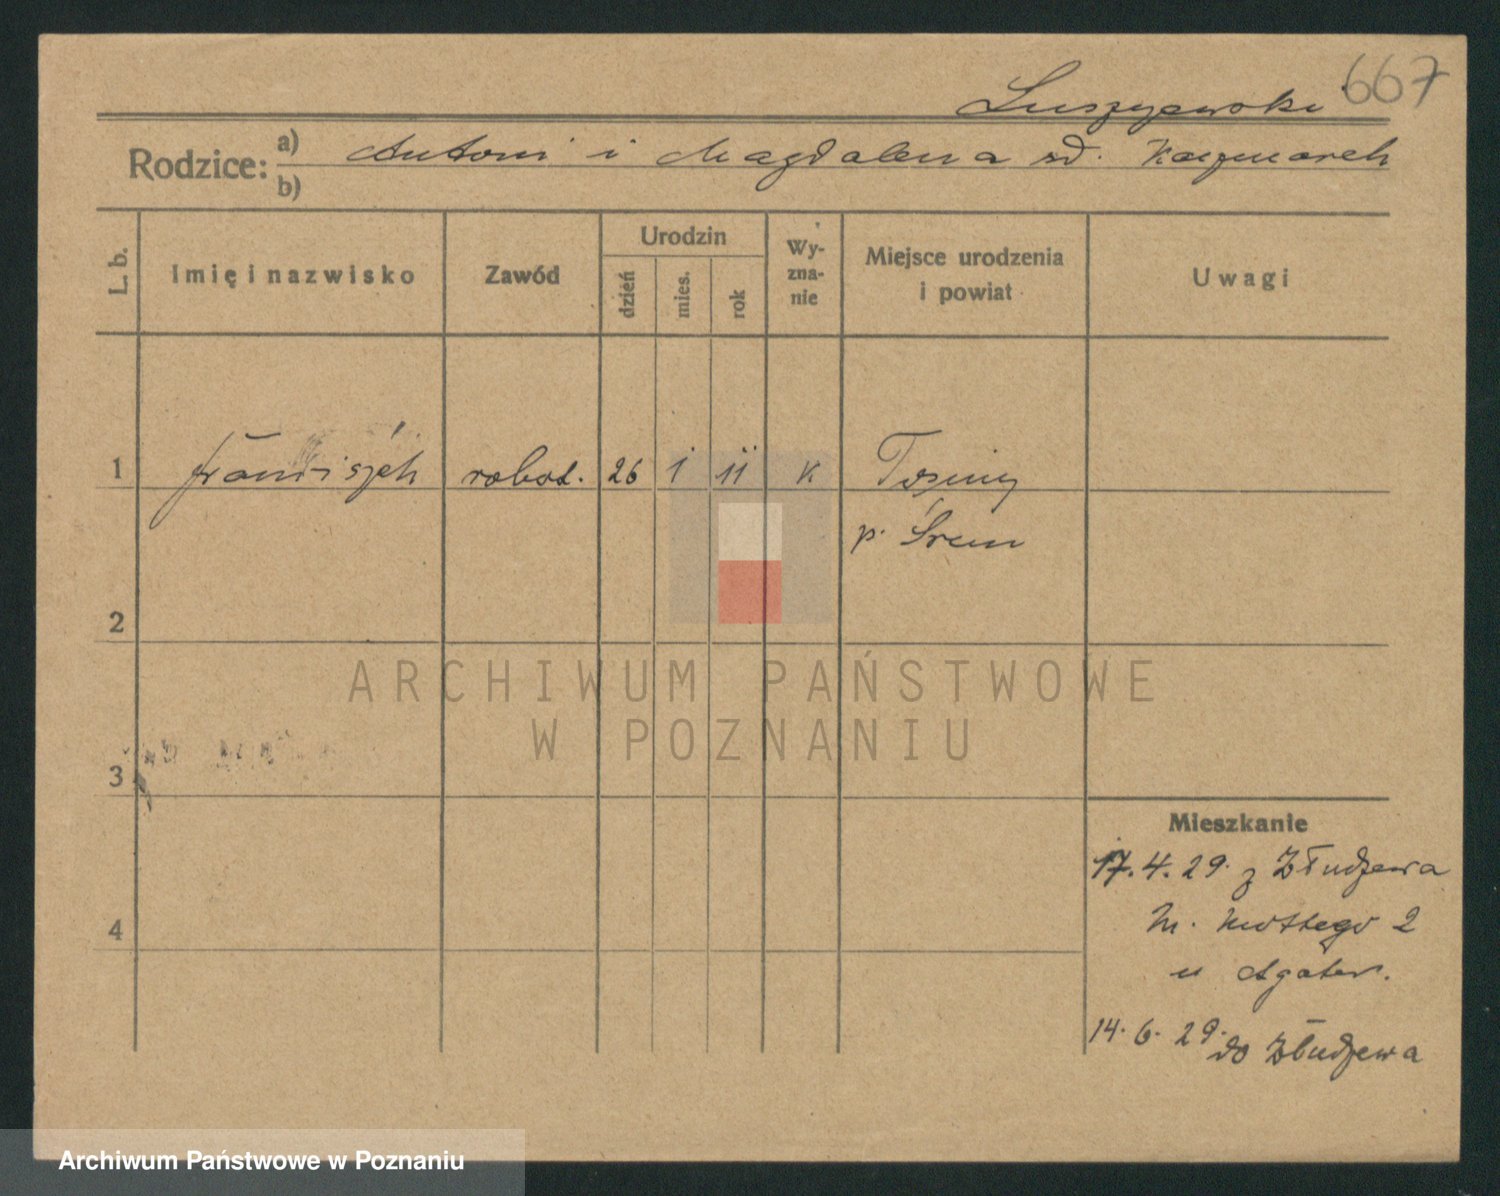 667
Luszyewski
Rodzice: a) Antoni i Magdalena zd. Kaczmarek
b)
L. b.
Imię i nazwisko
Zawód
Urodzin
dzień
mies.
rok
Wy-
zna-
nie
Miejsce urodzenia
i powiat
Uwagi
1 Franciszek robot. 26 1 11 K
p. Śrem
2
ARCHIWUM PAŃSTWOWE
W POZNANIU
3
Mieszkanie
17.4.29. z
4
m. 2
u
14.6.29. do
Archiwum Państwowe w Poznaniu